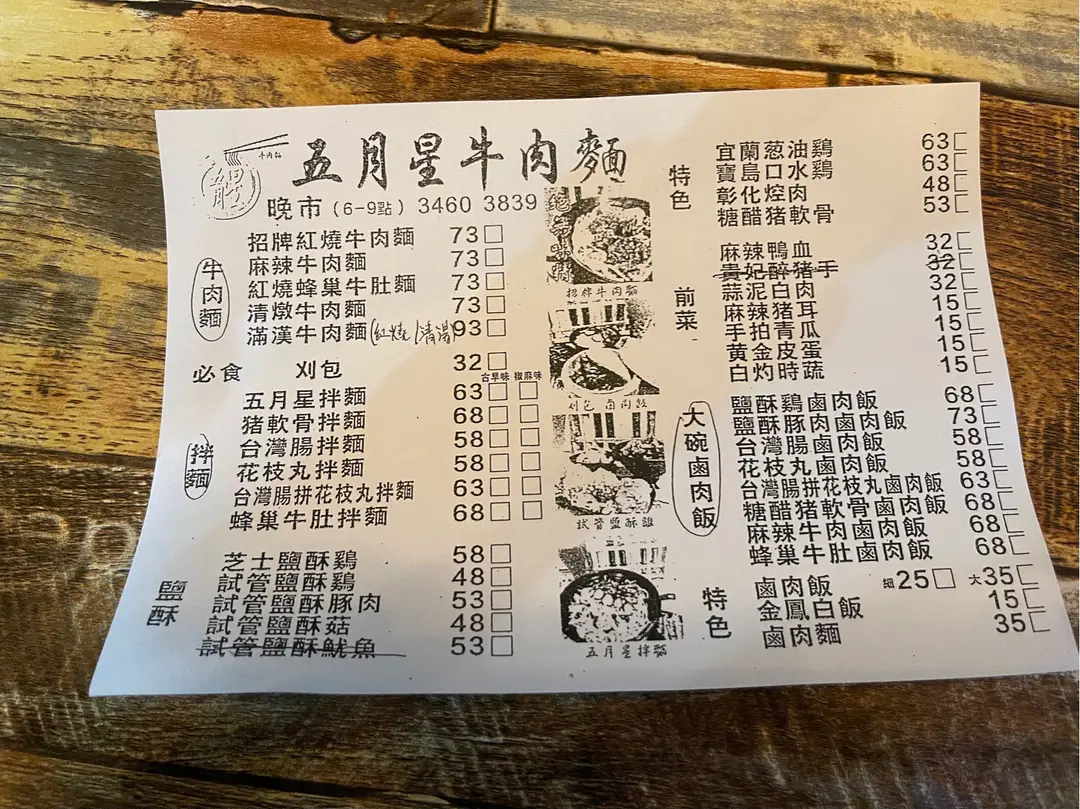 五月星牛肉麵
晚市 (6-9點) 3460 3839
牛肉麵
招牌紅燒牛肉麵 73
麻辣牛肉麵 73
紅燒蜂巢牛肚麵 73
清燉牛肉麵 73
滿漢牛肉麵(紅燒/清湯) 93
必食 刈包 32
古早味 椒麻味
拌麵
五月星拌麵 63
猪軟骨拌麵 68
台灣腸拌麵 58
花枝丸拌麵 58
台灣腸拼花枝丸拌麵 63
蜂巢牛肚拌麵 68
鹽酥
芝士鹽酥鷄 58
試管鹽酥鷄 48
試管鹽酥豚肉 53
試管鹽酥菇 48
試管鹽酥魷魚 53
招牌牛肉麵
刈包 鹵肉飯
試管鹽酥雞
五月星拌麵
特色
宜蘭葱油鷄 63
寶島口水鷄 63
彰化焢肉 48
糖醋猪軟骨 53
前菜
麻辣鴨血 32
貴妃醉猪手 32
蒜泥白肉 32
麻辣猪耳 15
手拍青瓜 15
黄金皮蛋 15
白灼時蔬 15
大碗鹵肉飯
鹽酥鷄鹵肉飯 68
鹽酥豚肉鹵肉飯 73
台灣腸鹵肉飯 58
花枝丸鹵肉飯 58
台灣腸拼花枝丸鹵肉飯 63
糖醋猪軟骨鹵肉飯 68
麻辣牛肉鹵肉飯 68
蜂巢牛肚鹵肉飯 68
特色
鹵肉飯 細25 大35
金鳳白飯 15
鹵肉麵 35